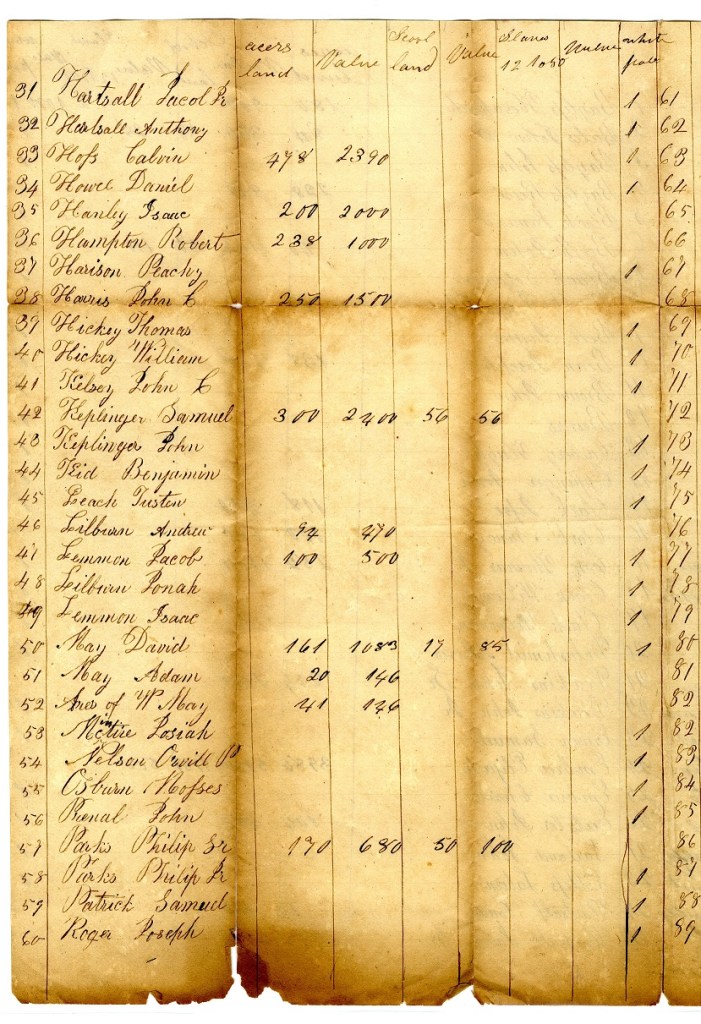 acers land Value Scool land Value Slaves 12 to 50 Value white pole
31 Hartsall Jacob Jr 1 61
32 Hartsall Anthony 1 62
33 Hofs Calvin 478 2390 1 63
34 Howel Daniel 1 64
35 Hanley Isaac 200 2000 65
36 Hampton Robert 238 1000 66
37 Harison Peachy 1 67
38 Harris John C 250 1500 68
39 Hickey Thomas 1 69
40 Hickey William 1 70
41 Kelsey John C 1 71
42 Keplinger Samuel 300 2400 56 56 72
43 Keplinger John 1 73
44 Kid Benjamin 1 74
45 Leach Justen 1 75
46 Lilburn Andrew 94 470 76
47 Lemmon Jacob 100 500 1 77
48 Lilburn Jonah 1 78
49 Lemmon Isaac 1 79
50 May David 161 1083 17 85 1 80
51 May Adam 20 146 81
52 of W May 41 146 82
53 Josiah 1 82
54 Nelson Orvill 1 83
55 Osburn Mofses 1 84
56 John 1 85
57 Parks Philip Sr 170 680 50 100 86
58 Parks Philip Jr 1 87
59 Patrick Samuel 1 88
60 Roger Joseph 1 89